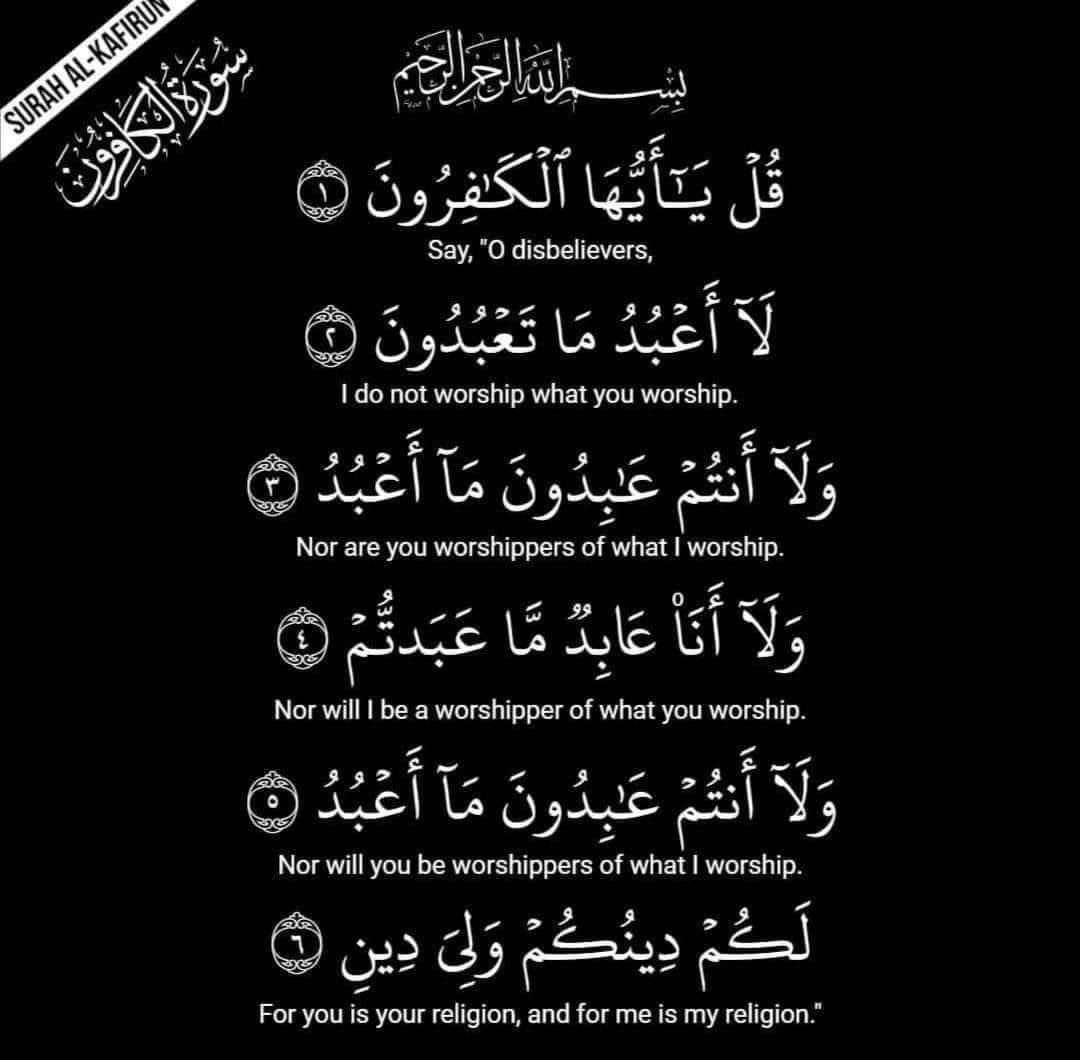 SURAH AL-KAFIRUN
سورة الكافرون
بِسْمِ اللَّهِ الرَّحْمَٰنِ الرَّحِيمِ
قُلۡ يَـٰٓأَيُّهَا ٱلۡكَـٰفِرُونَ ١
Say, "O disbelievers,
لَآ أَعۡبُدُ مَا تَعۡبُدُونَ ٢
I do not worship what you worship.
وَلَآ أَنتُمۡ عَـٰبِدُونَ مَآ أَعۡبُدُ ٣
Nor are you worshippers of what I worship.
وَلَآ أَنَا۠ عَابِدٞ مَّا عَبَدتُّمۡ ٤
Nor will I be a worshipper of what you worship.
وَلَآ أَنتُمۡ عَـٰبِدُونَ مَآ أَعۡبُدُ ٥
Nor will you be worshippers of what I worship.
لَكُمۡ دِينُكُمۡ وَلِيَ دِينِ ٦
For you is your religion, and for me is my religion."